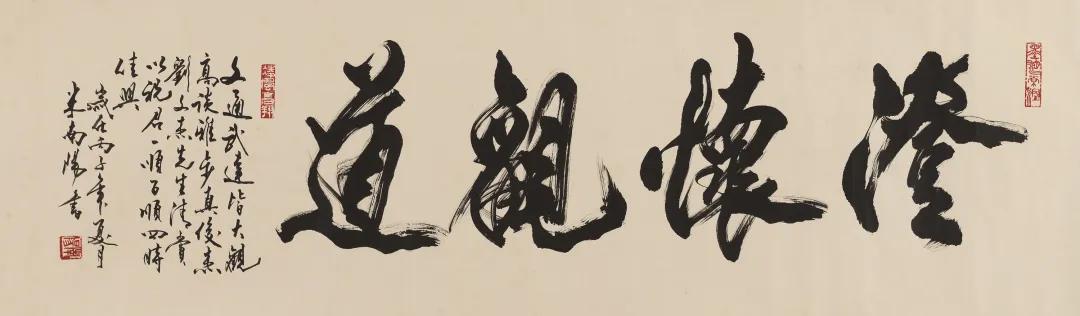 澄懷觀道
文通武達皆大觀
高談雅步真俊杰
劉文杰先生清賞
以祝君一順百順四時
佳興
歲在丙子年夏月
米南陽書